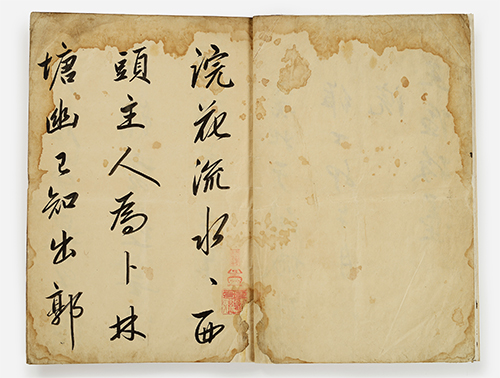 浣花流水、西
頭主人為卜林
塘幽已知出郭